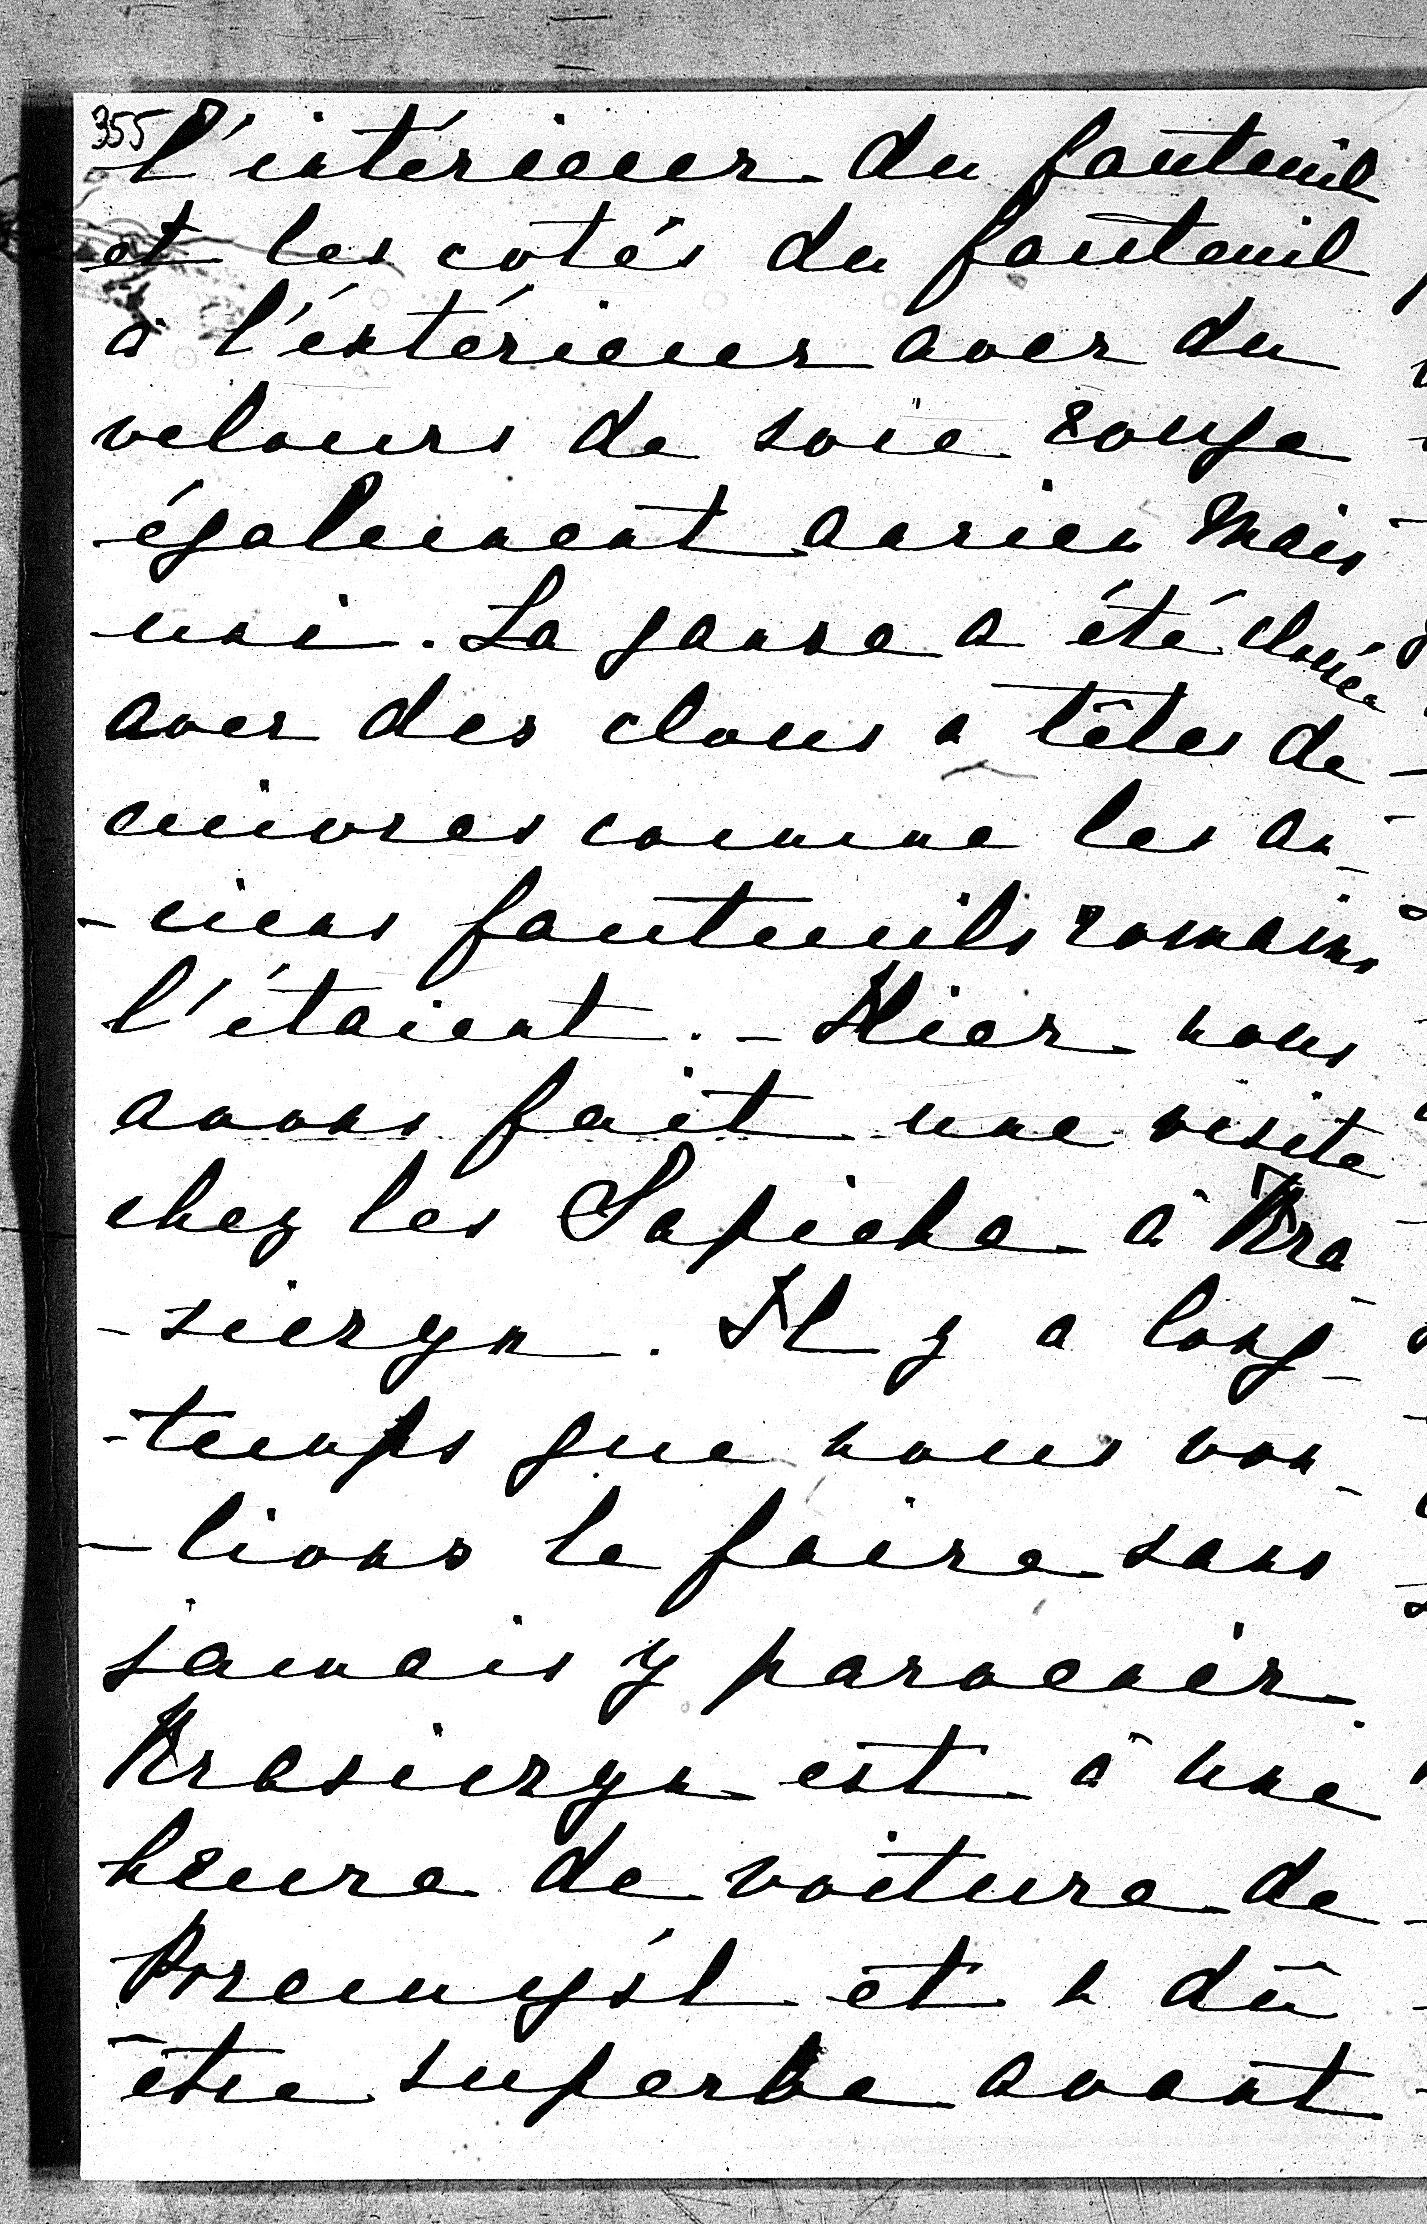 355
l'intérieur du fauteuil
et les cotés du fauteuil
à l'extérieur avec du
velours de soie rouge
également ancien mais
uni. La ganse a été clouée
avec des clous a têtes de
cuivres comme les an-
-ciens fauteuils romains
l'étaient. - Hier nous
avons fait une visite
chez les Sapieha à Kra
-siczyn. Il y a long-
-temps que nous vou-
-lions le faire sans
jamais y parvenir.
Krasiczyn est à une
heure de voiture de
Przemyśl et a dû
être superbe avant